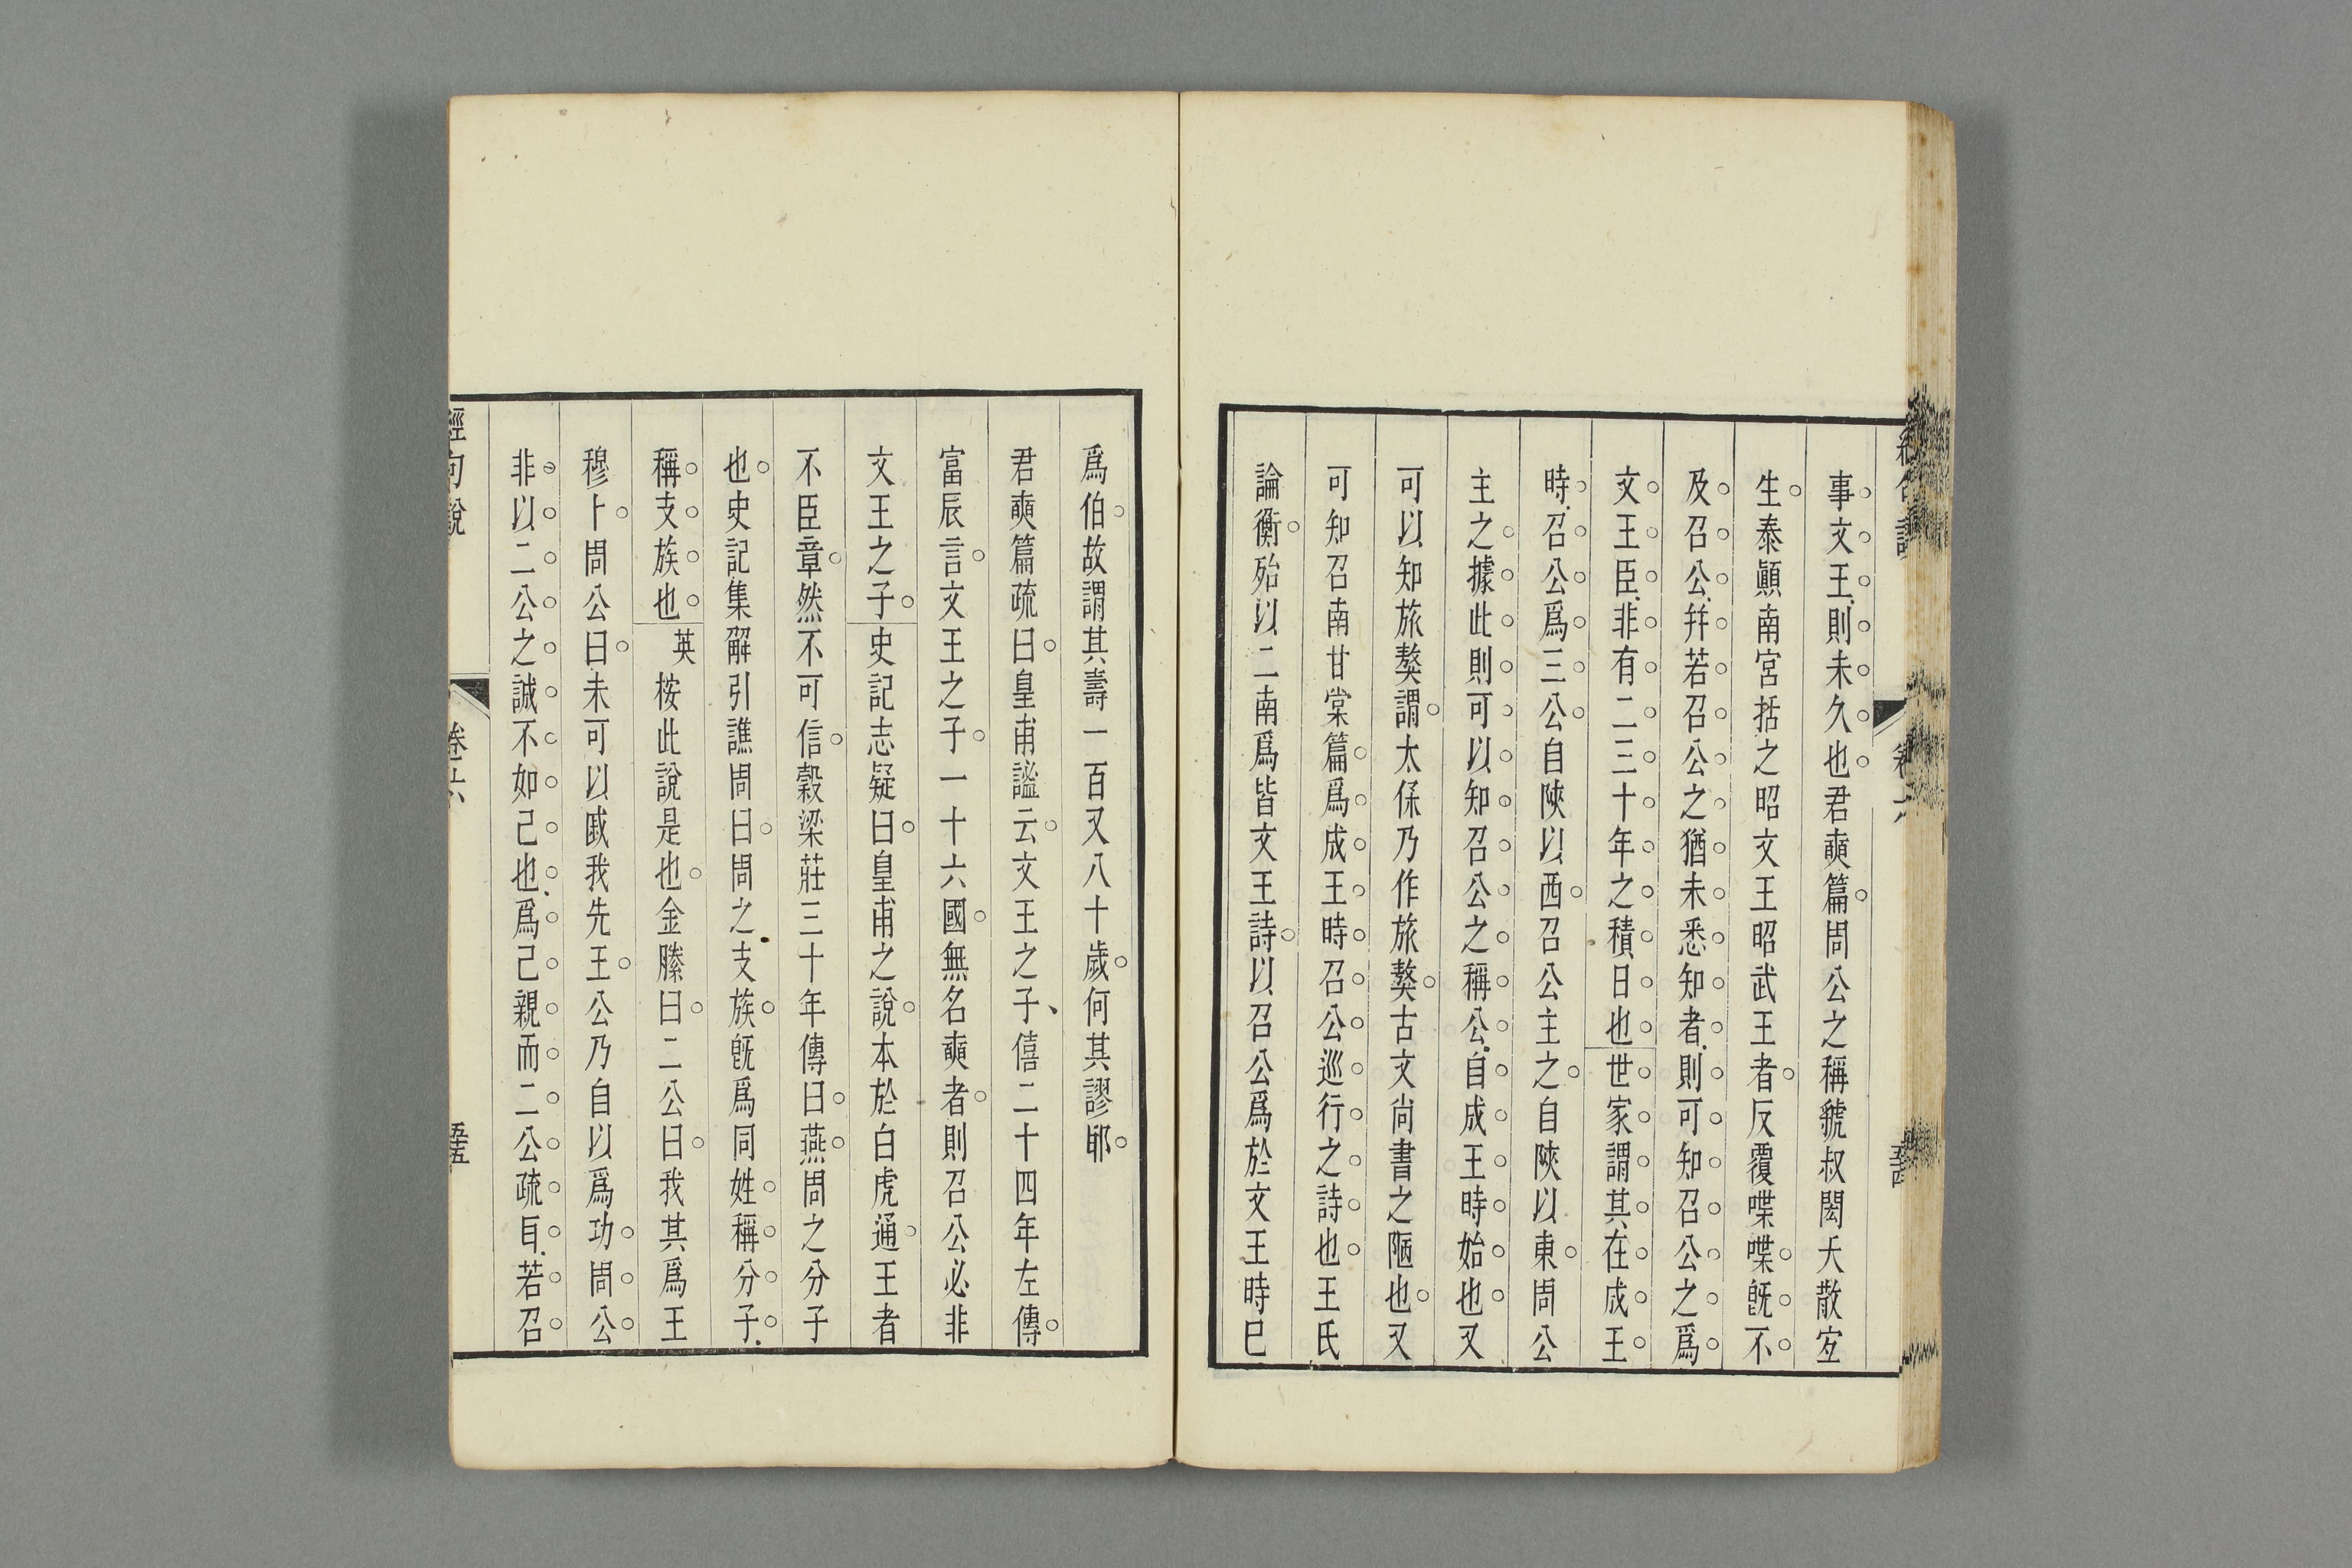 事文王則未久也君奭篇周公之稱虢叔閎夭散宜
生泰顚南宮括之昭文王昭武王者反覆喋喋旣不
及召公幷若召公之猶未悉知者則可知召公之爲
文王臣非有二三十年之積日也世家謂其在成王
時召公爲三公自陝以西召公主之自陝以東周公
主之據此則可以知召公之稱公自成王時始也又
可以知旅獒謂太保乃作旅獒古文尚書之陋也又
可知召南甘棠篇爲成王時召公巡行之詩也王氏
論衡殆以二南爲皆文王詩以召公爲於文王時巳
爲伯故謂其壽一百又八十歲何其謬耶
君奭篇疏曰皇甫謐云文王之子僖二十四年左傳
富辰言文王之子一十六國無名奭者則召公必非
文王之子史記志疑曰皇甫之說本於白虎通王者
不臣章然不可信穀梁莊三十年傳曰燕周之分子
也史記集解引譙周曰周之支族旣爲同姓稱分子
稱支族也英桉此說是也金縢曰二公曰我其爲王
穆卜周公曰未可以戚我先王公乃自以爲功周公
非以二公之誠不如己也爲己親而二公疏耳若召
經句說
卷十六
五